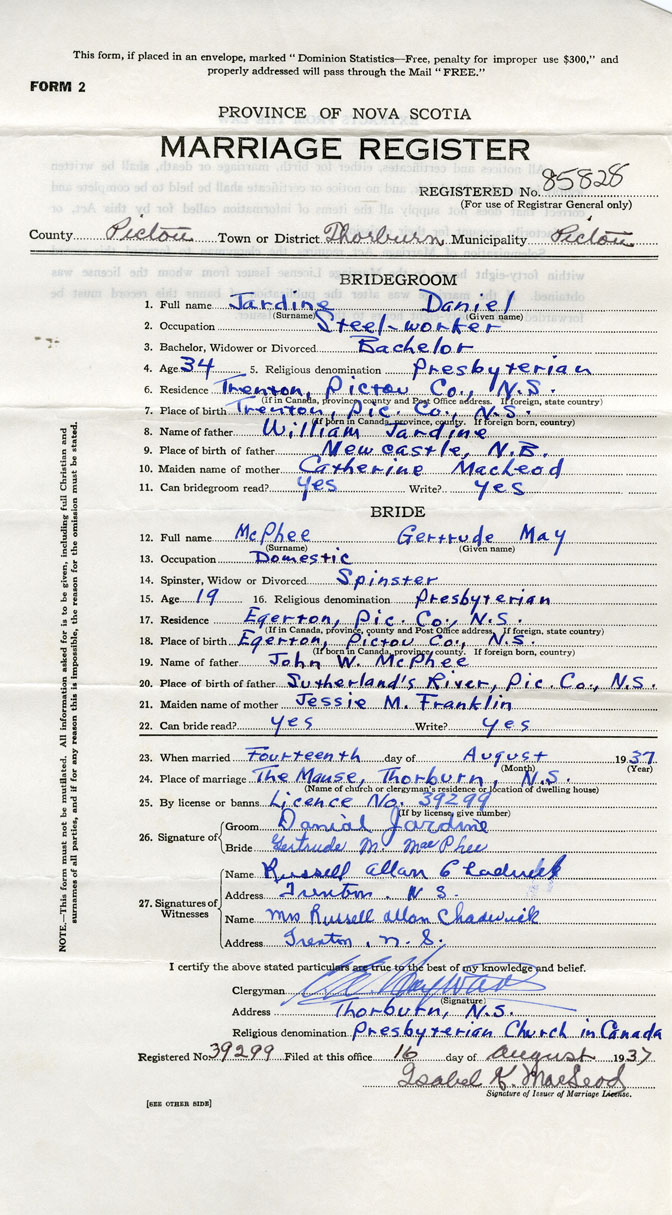 This form, if placed in an envelope, marked "Dominion Statistics—Free, penalty for improper use $300," and
properly addressed will pass through the Mail "FREE."
FORM 2
PROVINCE OF NOVA SCOTIA
MARRIAGE REGISTER
REGISTERED No. 85828
(For use of Registrar General only)
County Pictou Town or District Thorburn Municipality Pictou
BRIDEGROOM
1. Full name Jardine Daniel
(Surname) (Given name)
2. Occupation Steel-worker
3. Bachelor, Widower or Divorced Bachelor
4. Age 34 5. Religious denomination Presbyterian
6. Residence Trenton, Pictou Co., N.S.
(If in Canada, province, county and Post Office address. If foreign, state country)
7. Place of birth Trenton, Pic. Co., N.S.
(If born in Canada, province, county. If foreign born, country)
8. Name of father William Jardine
9. Place of birth of father Newcastle, N.B.
10. Maiden name of mother Catherine MacLeod
11. Can bridegroom read? yes Write? yes
BRIDE
12. Full name McPhee Gertrude May
(Surname) (Given name)
13. Occupation Domestic
14. Spinster, Widow or Divorced Spinster
15. Age 19 16. Religious denomination Presbyterian
17. Residence Egerton, Pic. Co., N.S.
(If in Canada, province, county and Post Office address, If foreign, state country)
18. Place of birth Egerton, Pictou Co., N.S.
(If born in Canada, province, county. If foreign born, country)
19. Name of father John W. McPhee
20. Place of birth of father Sutherland's River, Pic. Co., N.S.
21. Maiden name of mother Jessie M. Franklin
22. Can bride read? yes Write? yes
23. When married Fourteenth day of August 1937
(Month) (Year)
24. Place of marriage The Manse, Thorburn, N.S.
(Name of church or clergyman's residence or location of dwelling house)
25. By license or banns Licence No. 39299
(If by license, give number)
26. Signature of Groom Danial Jardine
Bride Gertrude M. MacPhee
27. Signatures of Witnesses Name Russell Allan Chadwick
Address Trenton, N S.
Name Mrs Russell Allan Chadwick
Address Trenton, N. S.
I certify the above stated particulars are true to the best of my knowledge and belief.
Clergyman
(Signature)
Address Thorburn, N.S.
Religious denomination Presbyterian Church in Canada
Registered No. 39299 Filed at this office 16 day of August 1937
Isabel K. MacLeod
Signature of Issuer of Marriage License.
[SEE OTHER SIDE]
NOTE.—This form must not be mutilated. All information asked for is to be given, including full Christian and
surnames of all parties, and if for any reason this is impossible, the reason for the omission must be stated.